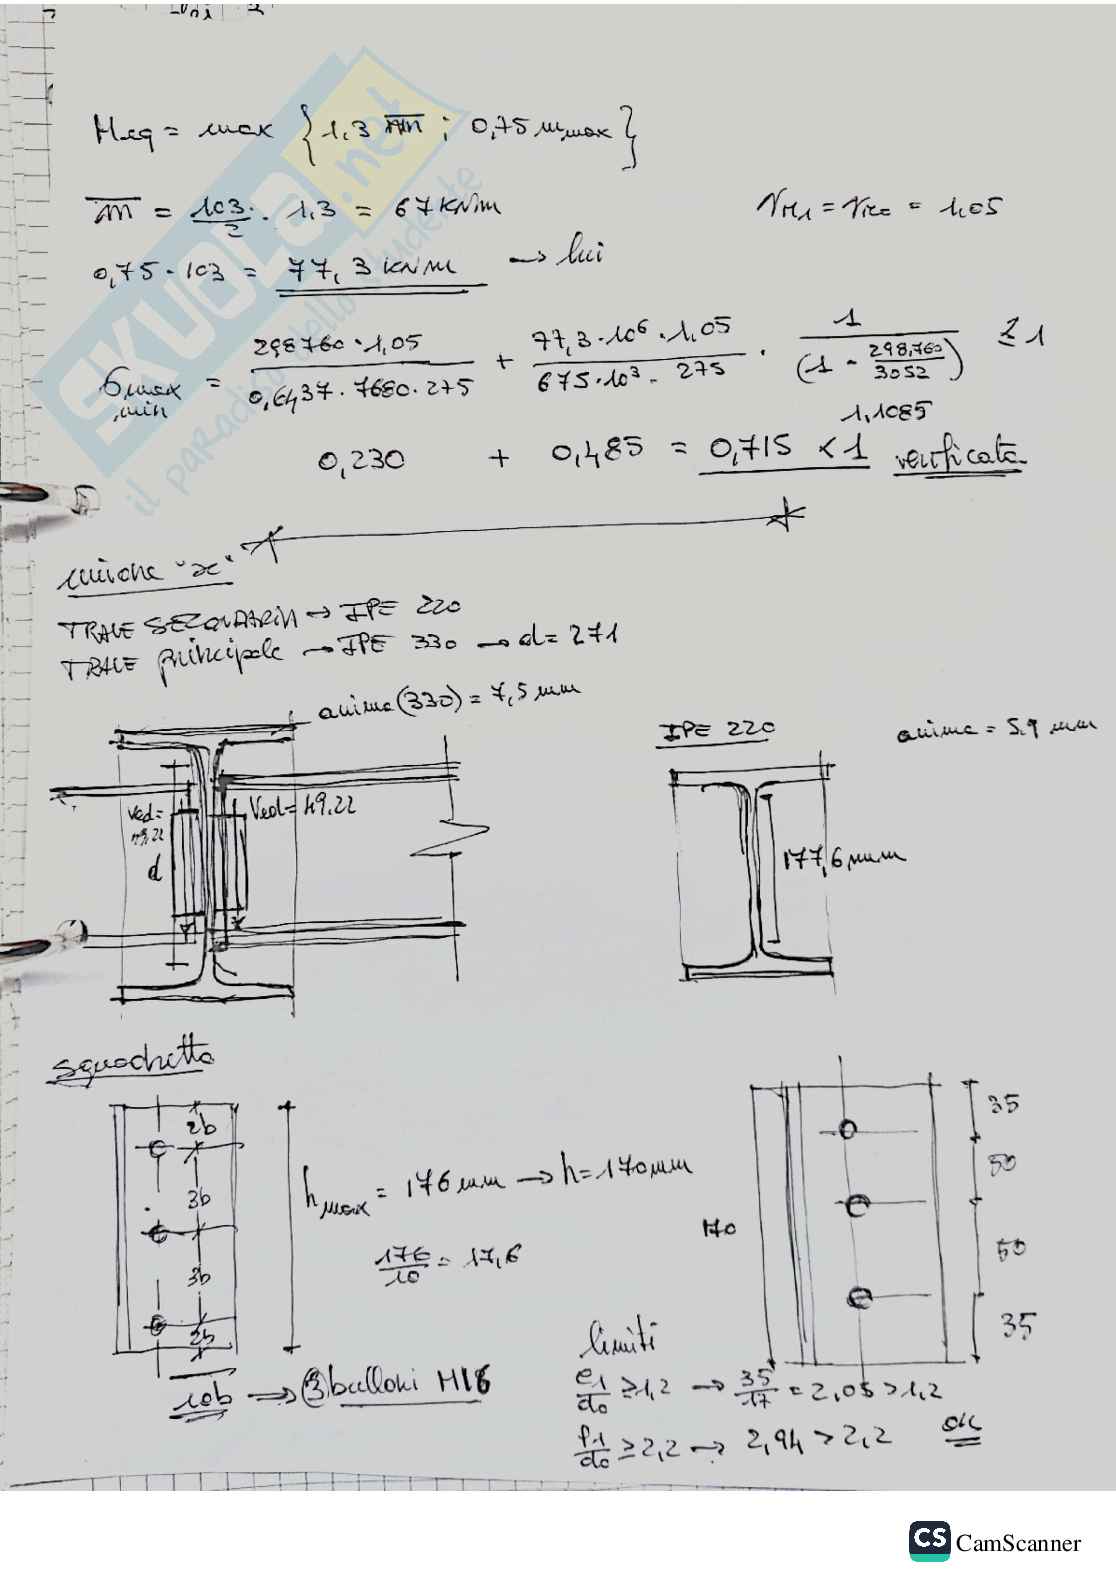 Meq = max { 1,3 m̅ ; 0,75 m,max }
m̅ = 103/2 · 1,3 = 67 kN/m
γM1 = γM0 = 1,05
0,75 · 103 = 77,3 kN/m → lui
σmax,min = 298760 · 1,05 / 0,6437 · 7680 · 275 + 77,3 · 10⁶ · 1,05 / 675 · 10³ · 275 · 1 / (1 - 298,760/3052) ≤ 1
1,1085
0,230 + 0,485 = 0,715 < 1 verificata
unione "x"
TRAVE SECONDARIA → IPE 220
TRAVE principale → IPE 330 → d = 271
anima (330) = 7,5 mm
IPE 220
anima = 5.9 mm
Ved = 49.22
Ved = 49.22
d
177,6 mm
squadretta
2b
3b
3b
2b
10b → 3 bulloni M16
hmax = 176 mm → h = 170 mm
176/10 = 17,6
170
35
50
50
35
limiti
e1/d0 ≥ 1,2 → 35/17 = 2,05 > 1,2
P1/d0 ≥ 2,2 → 2,94 > 2,2 ok
SKUOLA.net
il paradiso dello studente
CS CamScanner